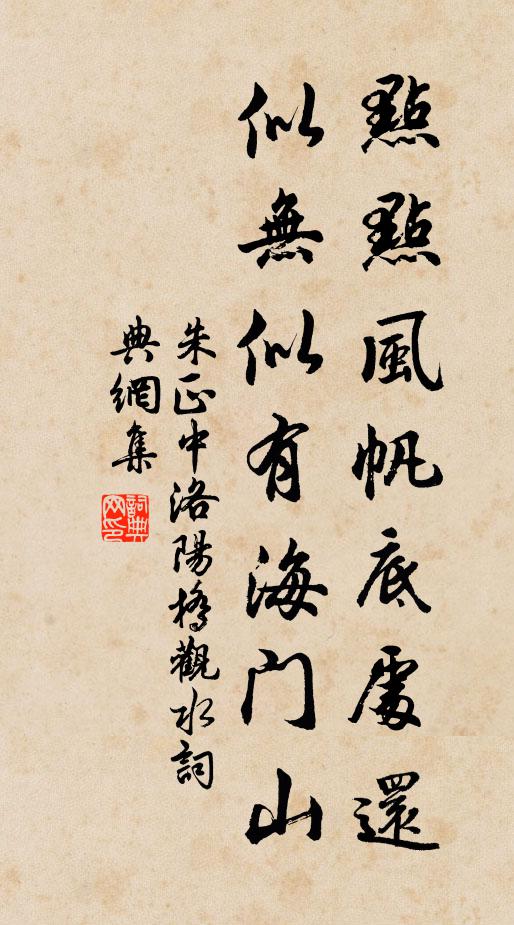 點點風帆底處還
似無似有海门山
朱正中洛陽橋觀水詞
典網集
詞典网印